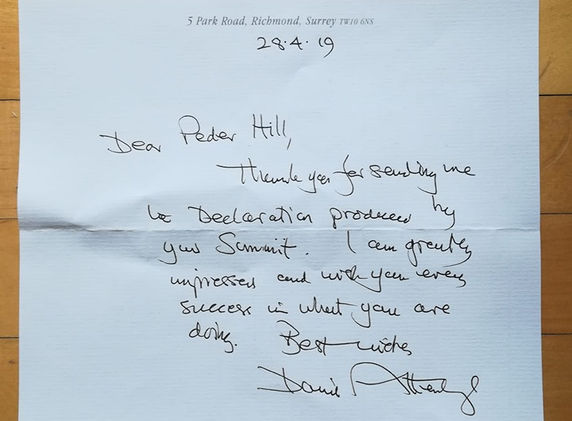 5 Park Road, Richmond, Surrey TW10 6NS
28.4.19
Dear Peder Hill,
Thank you for sending me
the Declaration produced by
your Summit. I am greatly
impressed and wish you every
success in what you are
doing. Best wishes
David Attenborough